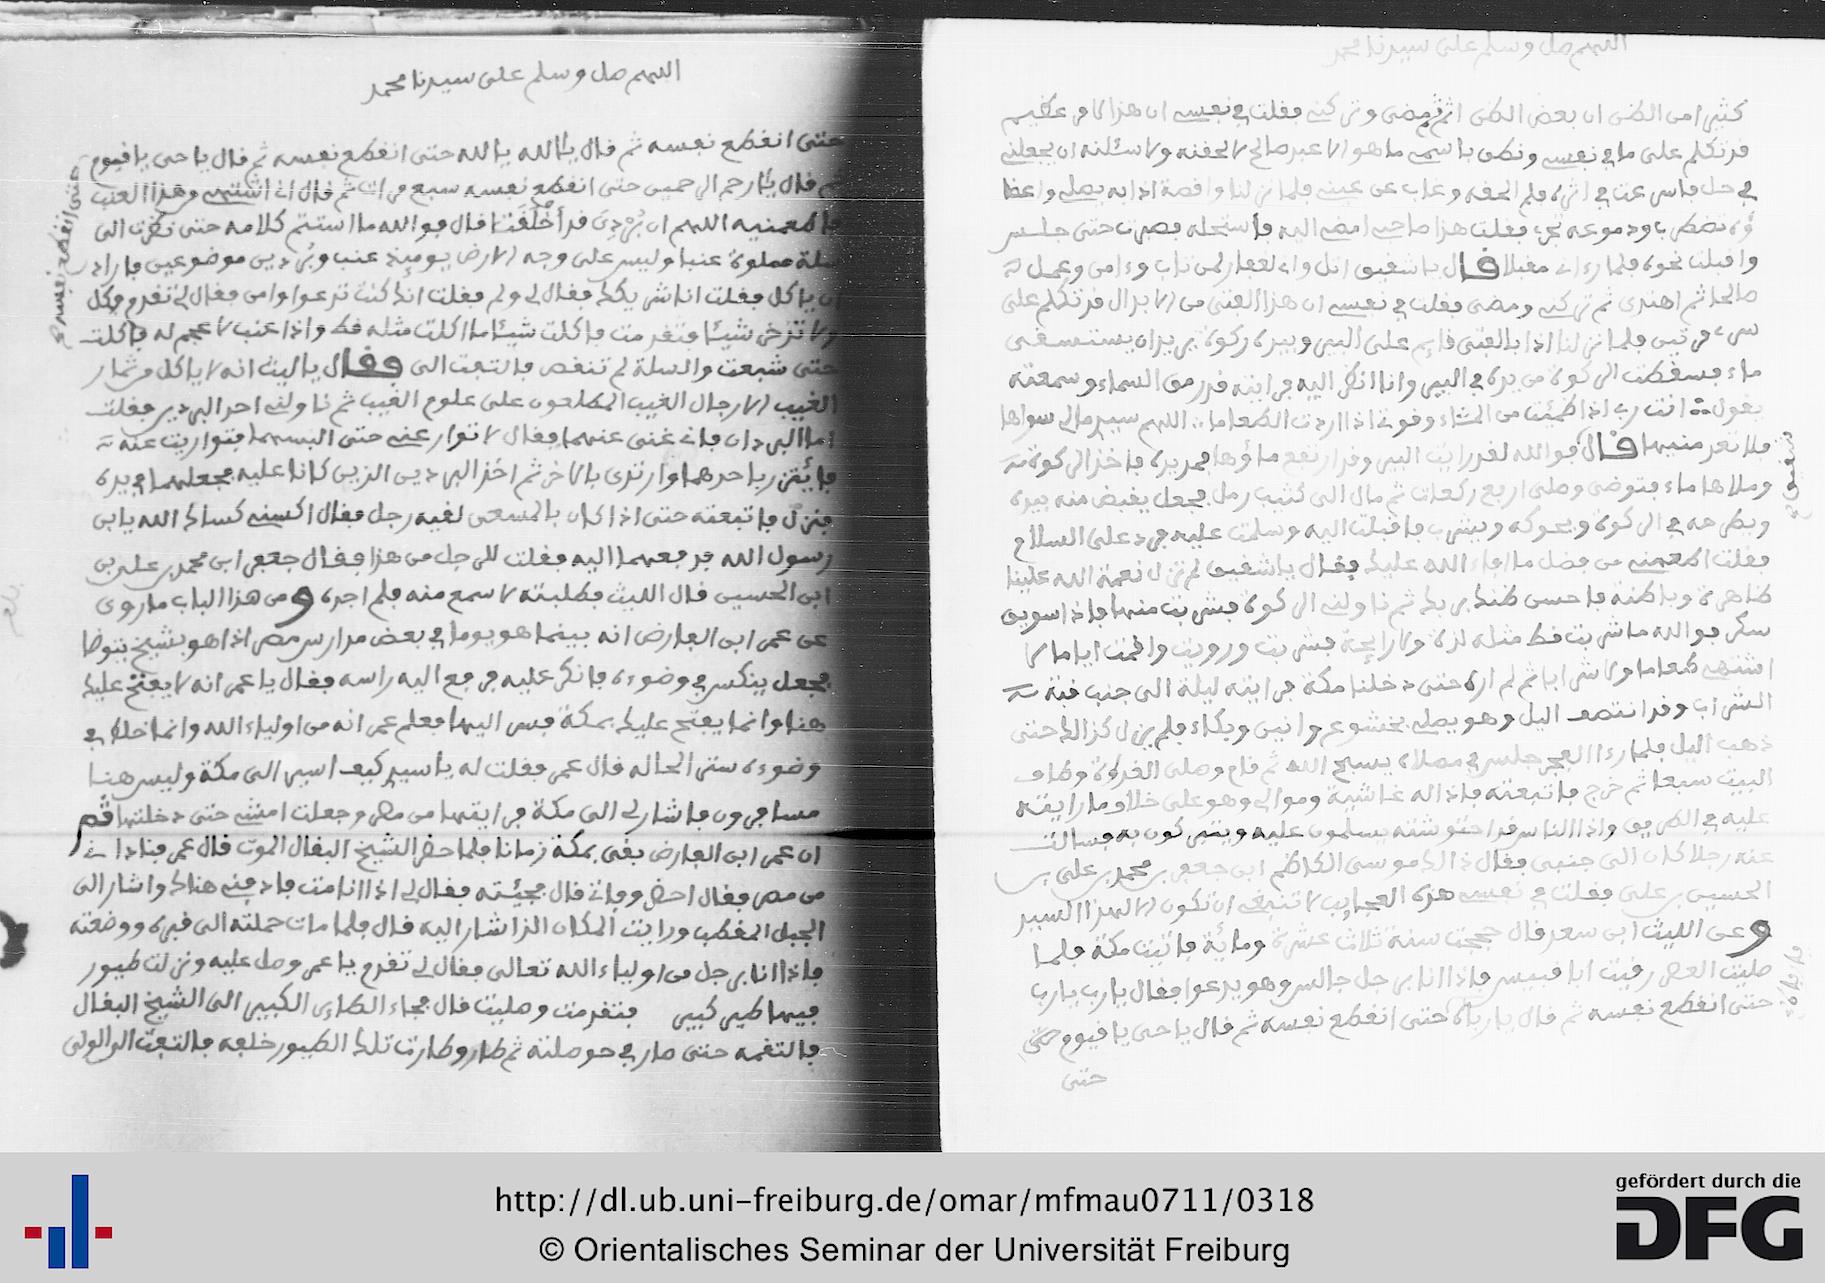 اللهم صل وسلم على سيدنا محمد
كثيرا من الظن ان بعض الظن اثم ومضى وتركني فقلت في نفسي ان هذا لامر عظيم
قد تكلم على ما في نفسي ونطق باسمي ما هو الا عبد صالح لالحقنه ولاسئلنه ان يجعلني
في حل فاسرعت في اثره فلم الحقه وغاب عن عيني فلما نزلنا واقصة اذا به يصلي واعضا
ؤه تضطرب ودموعه تجري فقلت هذا صاحبي امضي اليه فاستحله فصبرت حتى جلس
واقبلت نحوه فلما رءاني مقبلا قال يا شفيق اتل واني لغفار لمن تاب وءامن وعمل
صالحا ثم اهتدى ثم تركني ومضى فقلت في نفسي ان هذا الفتى من الابدال قد تكلم على
سري مرتين فلما نزلنا اذا بالفتى قايم على البير وبيده ركوة يريد ان يستسقى
ماء فسقطت الركوة من يده في البير وانا انظر اليه فرايته قد رمق السماء وسمعته
يقول انت رب اذا ظمئت من الماء وقوتي اذا اردت الطعاما اللهم سيدي مالي سواها
فلا تعدمنيها قال فوالله لقد رايت البير وقد ارتفع ماؤها فمد يده فاخذ الركوة
وملاها ماء فتوضى وصلى اربع ركعات ثم مال الى كثيب رمل فجعل يقبض منه بيده
ويطرحه في الركوة ويحركه ويشرب فاقبلت اليه وسلمت عليه فرد علي السلام
فقلت اطعمني من فضل ما افاء الله عليك فقال يا شفيق لم تزل نعمة الله علينا
ظاهرة وباطنة فاحسن ظنك بربك ثم ناولني الركوة فشربت منها فاذا سويق
سكر فوالله ما شربت قط مثله لذة ولا رايحة فشربت ورويت واقمت اياما لا
اشتهي طعاما ولا شرابا ثم لم اره حتى دخلنا مكة فرايته ليلة الى جنب قبة
الشراب وقد انتصف اليل وهو يصلي بخشوع وانين وبكاء فلم يزل كذالك حتى
ذهب اليل فلما رءا الفجر جلس في مصلاه يسبح الله ثم قام وصلى الغداة وطاف
البيت سبعا ثم خرج فاتبعته فاذا له غاشية وموالي وهو على خلاف ما رايته
عليه في الطريق واذا الناس قد احتوشته يسلمون عليه ويتبركون به فسالت
عنه رجلا كان الى جنبي فقال ذالك موسى الكاظم ابن جعفر بن محمد بن علي بن
الحسين بن علي فقلت في نفسي هذه العجايب لا تنبغي ان تكون الا لهذا السيد
وعن الليث ابن سعد قال حججت سنة ثلاث عشرة ومائة فاتيت مكة فلما
صليت العصر رقيت ابا قبيس فاذا انا برجل جالس وهو يدعوا فقال يا رب يا رب
حتى انقطع نفسه ثم قال يا رباه حتى انقطع نفسه ثم قال يا حي يا قيوم حتى
حتى
اللهم صل وسلم على سيدنا محمد
حتى انقطع نفسه ثم قال يا الله يا الله حتى انقطع نفسه ثم قال يا حي يا قيوم
حتى انقطع نفسه
ثم قال يا ارحم الرحمين حتى انقطع نفسه سبع مرات ثم قال اني اشتهي وهذا العنب
فاطعمنيه اللهم ان بردي قد أخلقت قال فوالله ما استتم كلامه حتى نظرت الى
سلة مملوة عنبا وليس على وجه الارض يومئذ عنب وبردين موضوعين فاراد
ان ياكل فقلت انا شريكك فقال لي ولم فقلت انك كنت تدعوا وامن فقال لي تقدم وكل
ولا تدخر شيئا فتقدمت فاكلت شيئا ما اكلت مثله قط واذا عنب لا عجم له فاكلت
حتى شبعت والسلة لم تنقص فالتفت الى وقال يا ليث انه لا ياكل من ثمار
الغيب الا رجال الغيب المطلعون على علوم الغيب ثم ناولني احد البردين فقلت
اما البردان فاني غني عنهما فقال لا توار عني حتى البسهما فتواريت عنه
فايتزر باحدهما وارتدى بالاخر ثم اخذ البردين الذين كانا عليه فجعلهما في يده
فنزل فاتبعته حتى اذا كان بالمسعى لقيه رجل فقال اكسني كساك الله يا بن
رسول الله فدفعهما اليه فقلت للرجل من هذا فقال جعفر ابن محمد بن علي بن
ابن الحسين قال الليث فطلبته لاسمع منه فلم اجده ومن هذا الباب ما روى
عن عمر ابن الفارض انه بينما هو يوما في بعض مدارس مصر اذا هو بشيخ يتوضا
فجعل ينكس في وضوءه فانكر عليه فرفع اليه راسه فقال يا عمر انه لا يفتح عليك
هنا وانما يفتح عليك بمكة فسر اليها فعلم عمر انه من اولياء الله وانما خلط في
وضوءه ستر الحاله قال عمر فقلت له يا سيدي كيف اسير الى مكة وليس هنا
مسافرون فاشار لي الى مكة فرايتها من مصر وجعلت امشي حتى دخلتها ثم
ان عمر ابن الفارض بقى بمكة زمانا فلما حضر الشيخ البقال الموت قال عمر فناداني
من مصر فقال احضر وفاتي قال فجيئته فقال لي اذا انا مت فادفني هناك واشار الى
الجبل المقطب ورايت المكان الذا شار اليه قال فلما مات حملته الى قبره ووضعته
فاذا انا برجل من اولياء الله تعالى فقال لي تقدم يا عمر وصل عليه ونزلت طيور
فيها طير كبير فتقدمت وصليت قال فجاء الطاير الكبير الى الشيخ البقال
فالتقمه حتى صار في حوصلته ثم طار وطارت تلك الطيور خلفه فالتفت الى الولي
http://dl.ub.uni-freiburg.de/omar/mfmau0711/0318
© Orientalisches Seminar der Universität Freiburg
gefördert durch die
DFG